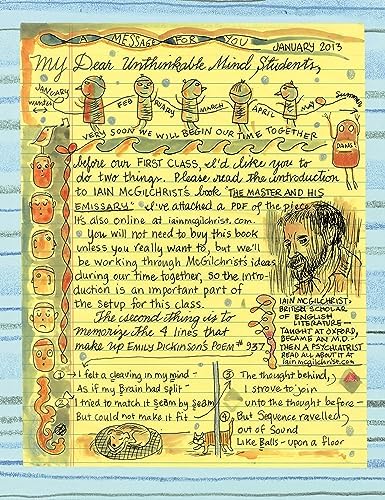 A MESSAGE FOR YOU
JANUARY 2013
My Dear Unthinkable Mind Students,
JANUARY
winter
FEB
RUARY
MARCH
APRIL
MAY
Summer
DANG
VERY SOON WE WILL BEGIN OUR TIME TOGETHER
before our FIRST CLASS, I'd like you to
do two things. Please read the introduction
to IAIN McGILCHRIST'S book "THE MASTER AND HIS
EMISSARY" I've attached a PDF of the piece
It's also online at iainmcgilchrist.com.
You will not need to buy this book
unless you really want to, but we'll
be working through McGilchrist's ideas
during our time together, so the intro-
duction is an important part of
the setup for this class.
The second thing is to
memorize the 4 lines that
make up EMILY DICKINSON'S POEM #937
IAIN McGILCHRIST:
BRITISH SCHOLAR
OF ENGLISH
LITERATURE—
TAUGHT AT OXFORD,
BECAME AN M.D.—
THEN A PSYCHIATRIST
READ ALL ABOUT IT at
iainmcgilchrist.com
① I felt a cleaving in my mind -
As if my Brain had split -
② I tried to match it Seam by Seam
But could not make it fit
③ The thought behind,
I strove to join
unto the thought before -
④ But Sequence ravelled
out of Sound
Like Balls - upon a floor